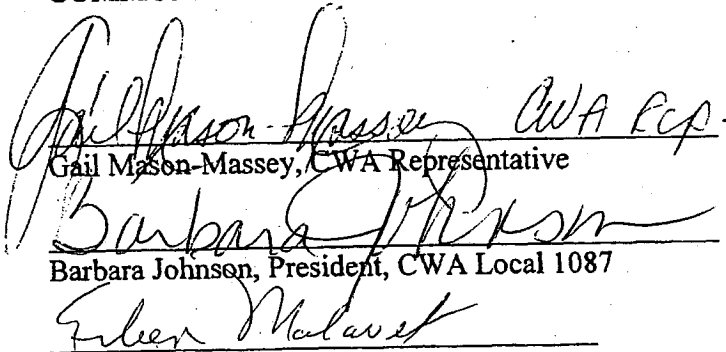 Gail Mason-Massey CWA Rep.
Gail Mason-Massey, CWA Representative
Barbara Johnson
Barbara Johnson, President, CWA Local 1087
Eileen Malavet